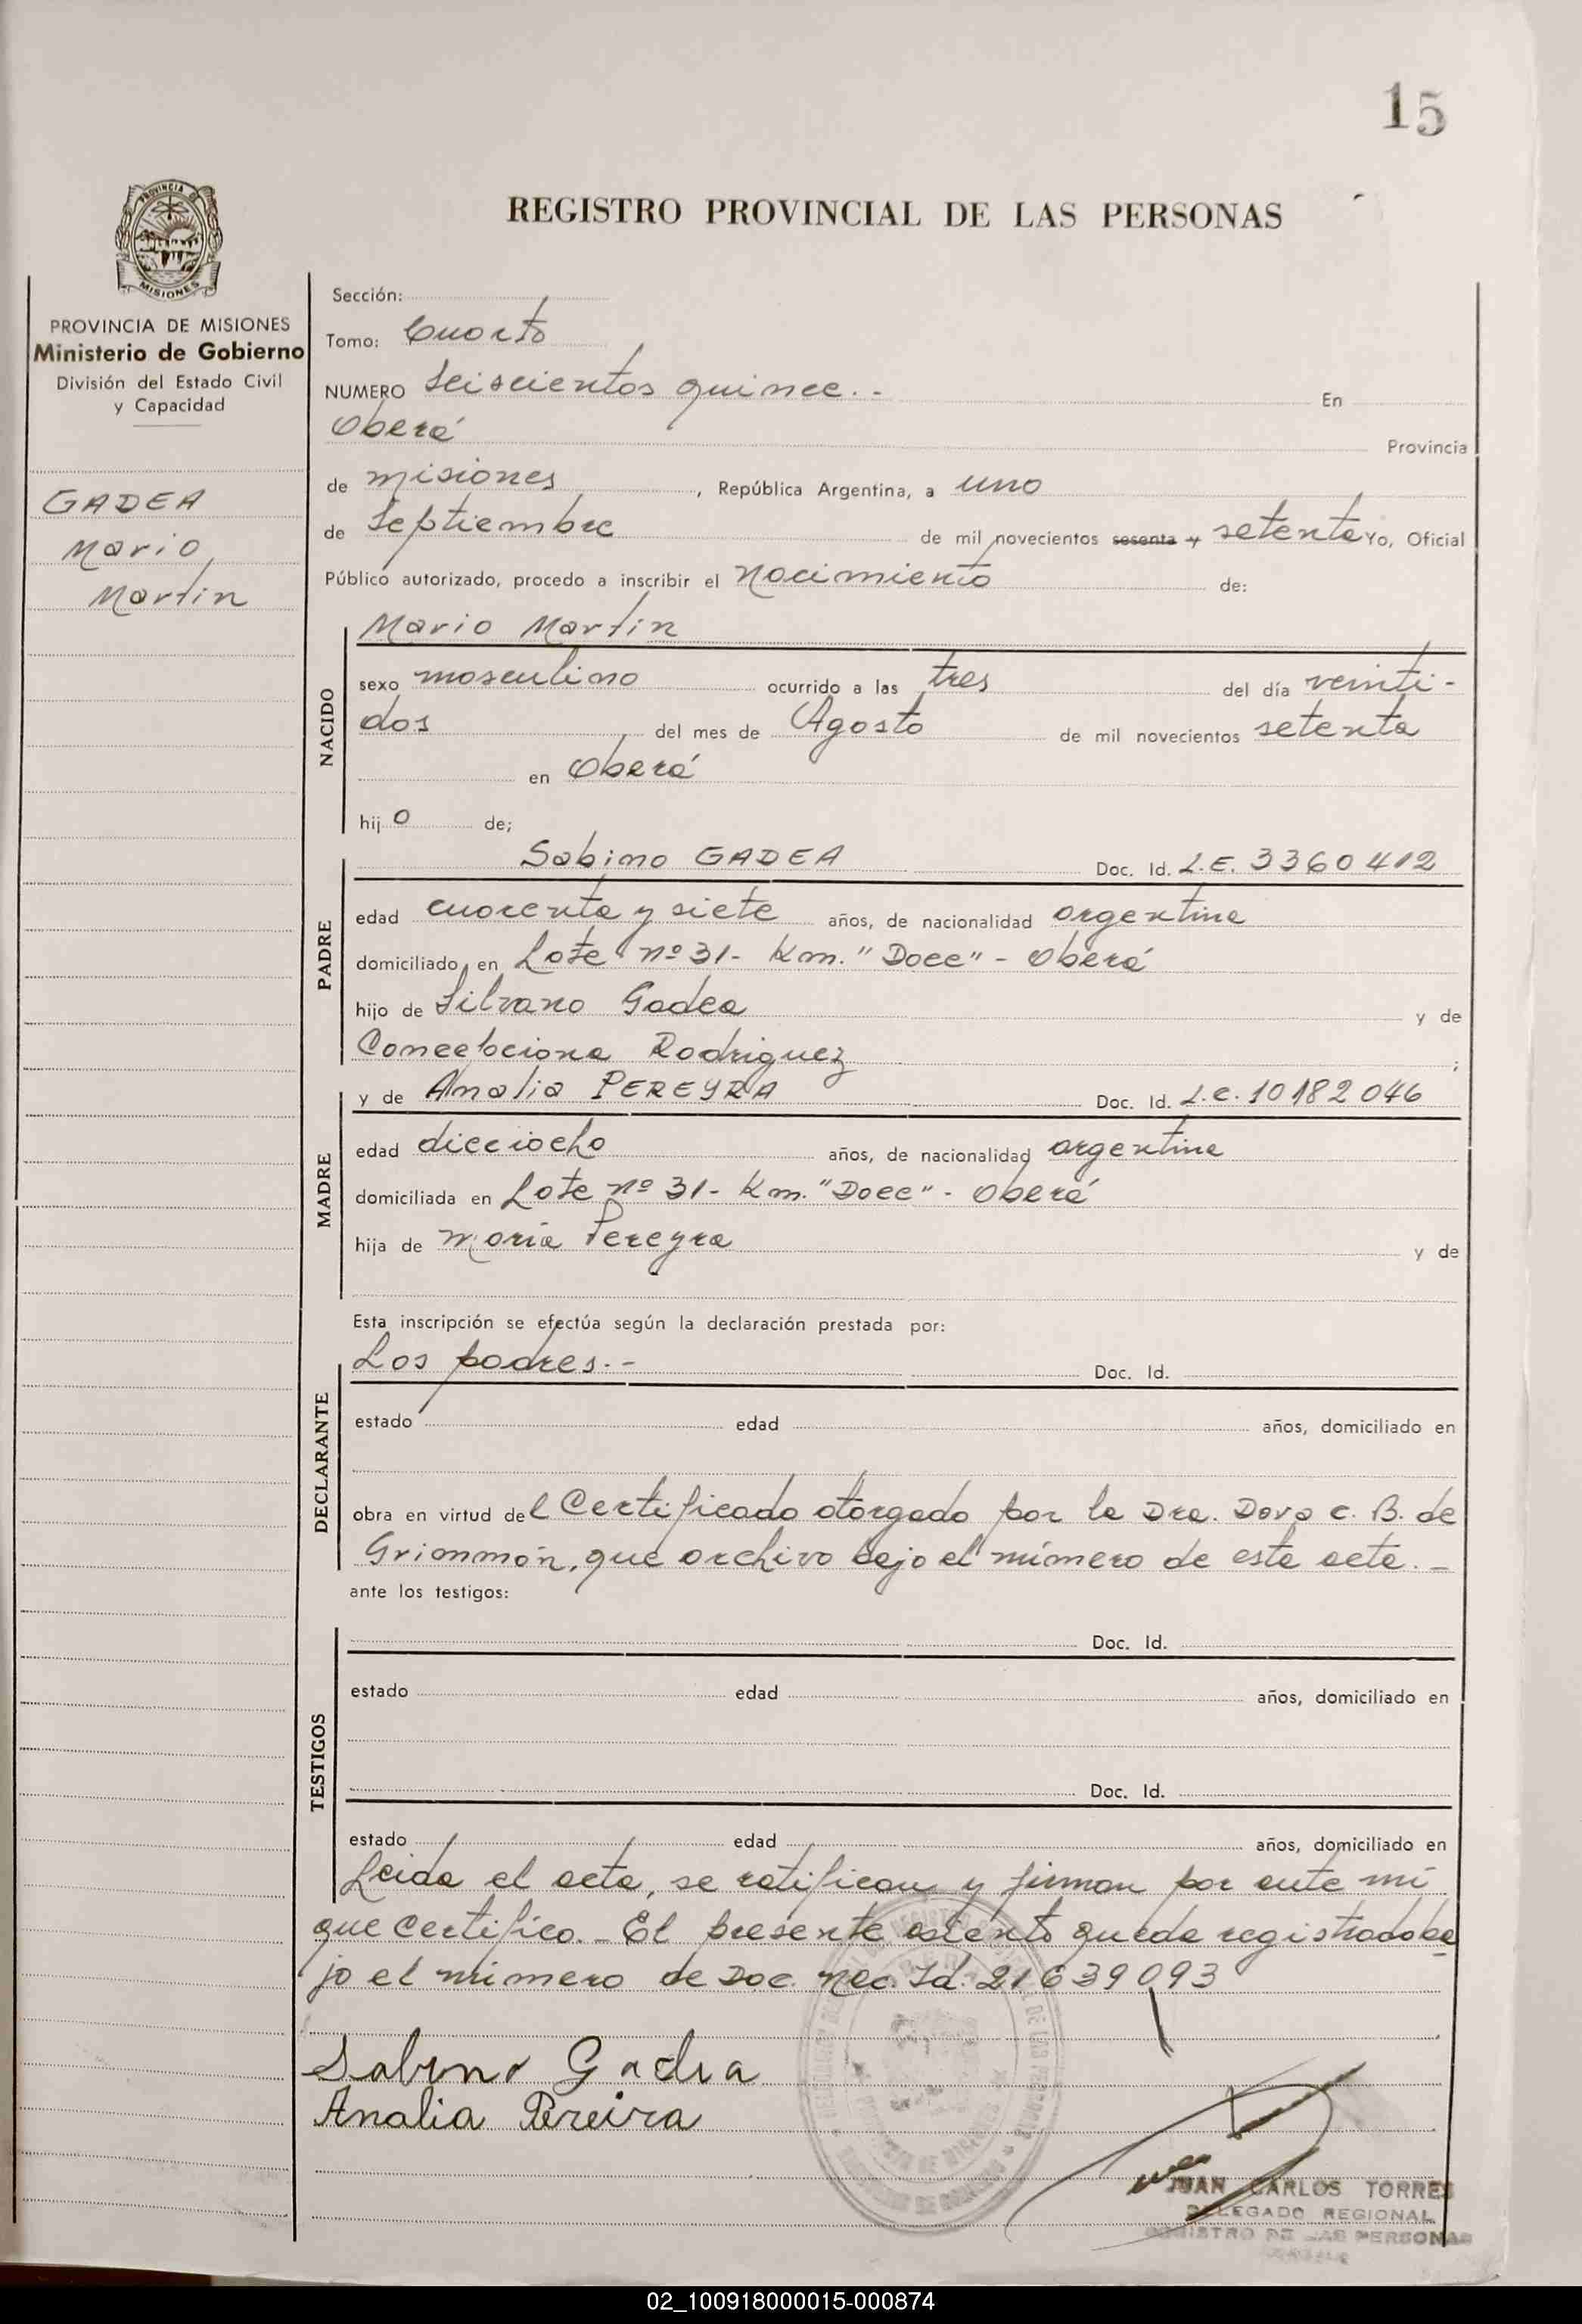 15
REGISTRO PROVINCIAL DE LAS PERSONAS
PROVINCIA DE
MISIONES
PROVINCIA DE MISIONES
Ministerio de Gobierno
División del Estado Civil
y Capacidad
GADEA
Mario
Martin
Sección:
Tomo: Cuarto
NUMERO Seiscientos quince.- En
Oberá Provincia
de misiones, República Argentina, a uno
de Septiembre de mil novecientos sesenta y setenta Yo, Oficial
Público autorizado, procedo a inscribir el nacimiento de:
NACIDO
Mario Martin
sexo masculino ocurrido a las tres del día veinti-
dos del mes de Agosto de mil novecientos setenta
en Oberá
hijo de;
PADRE
Sabino GADEA Doc. Id. L.E. 3360412
edad cuarenta y siete años, de nacionalidad argentina
domiciliado en Lote nº 31- Km. "Doce" - Oberá
hijo de Silvano Gadea y de
Concebciona Rodriguez ;
MADRE
y de Analia PEREYRA Doc. Id. L.C. 10182046
edad dieciocho años, de nacionalidad argentina
domiciliada en Lote nº 31- Km. "Doce" - Oberá
hija de María Pereyra y de
Esta inscripción se efectúa según la declaración prestada por:
DECLARANTE
Los padres.- Doc. Id.
estado edad años, domiciliado en
obra en virtud del Certificado otorgado por la Dra. Dora C. B. de
que archivo bajo el número de esta acta.-
ante los testigos:
TESTIGOS
Doc. Id.
estado edad años, domiciliado en
Doc. Id.
estado edad años, domiciliado en
Leida el acta, se ratifican y firman por ante mí
que certifico.- El presente asiento queda registrado ba
jo el número de Doc. Nac. Id. 21639093
Sabino Gadea
Analia Pereira
JUAN CARLOS TORRES
DELEGADO REGIONAL
REGISTRO DE LAS PERSONAS
02_100918000015-000874